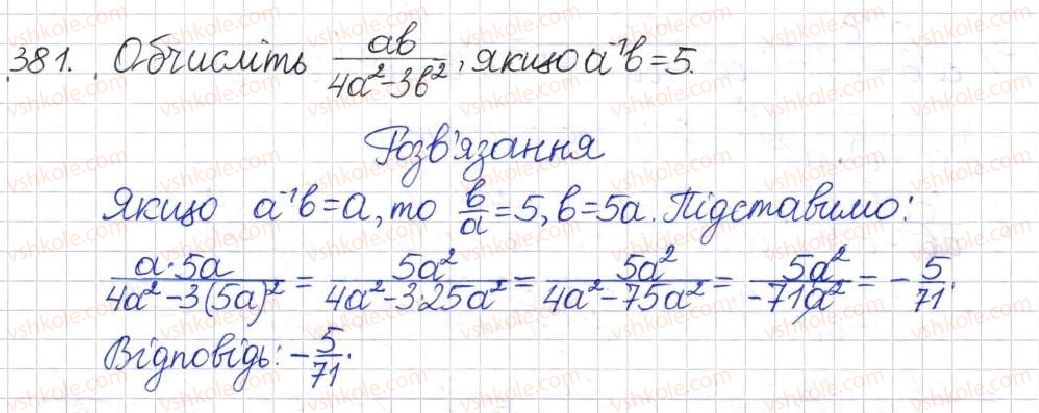 381. Обчисліть \frac{ab}{4a^2-3b^2}, якщо a^{-1}b=5.
Розв'язання
Якщо a^{-1}b=a, то \frac{b}{a}=5, b=5a. Підставимо:
\frac{a·5a}{4a^2-3(5a)^2} = \frac{5a^2}{4a^2-3·25a^2} = \frac{5a^2}{4a^2-75a^2} = \frac{5a^2}{-71a^2} = -\frac{5}{71}.
Відповідь: -\frac{5}{71}.